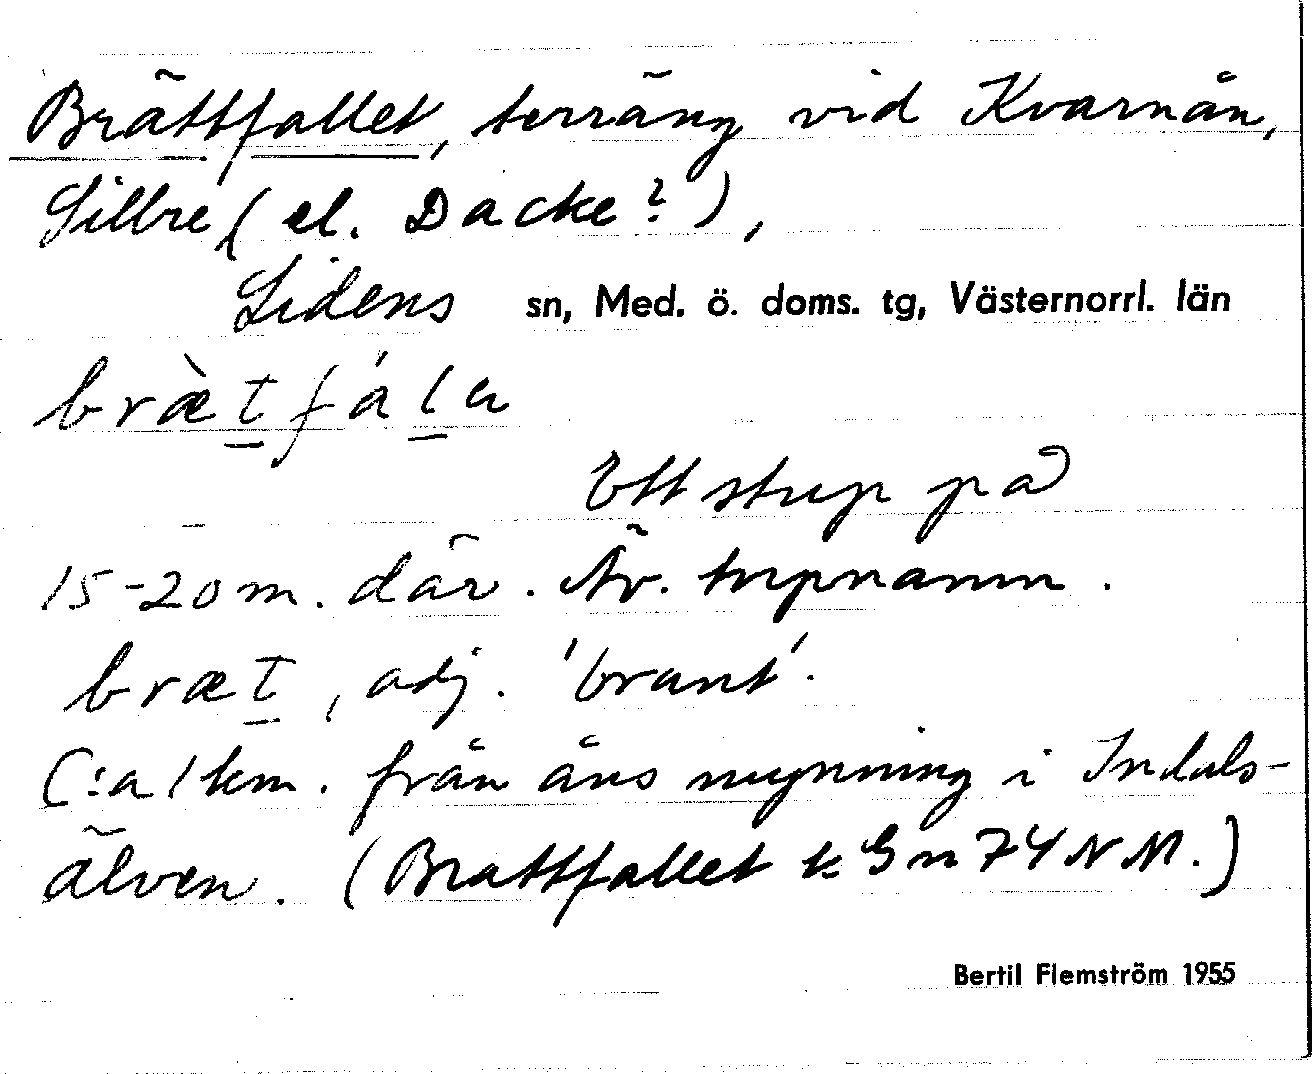 Brättfallet, terräng vid Kvarnån,
Sillre (el. Dacke?),
Lidens sn, Med. ö. doms. tg, Västernorrl. län
brætfala
Ett stup på
15-20 m. där. Äv. torpnamn.
bræt, adj. 'brant'.
C:a 1 km. från åns mynning i Indals-
älven. (Brattfallet k G m 74 N M.)
Bertil Flemström 1955